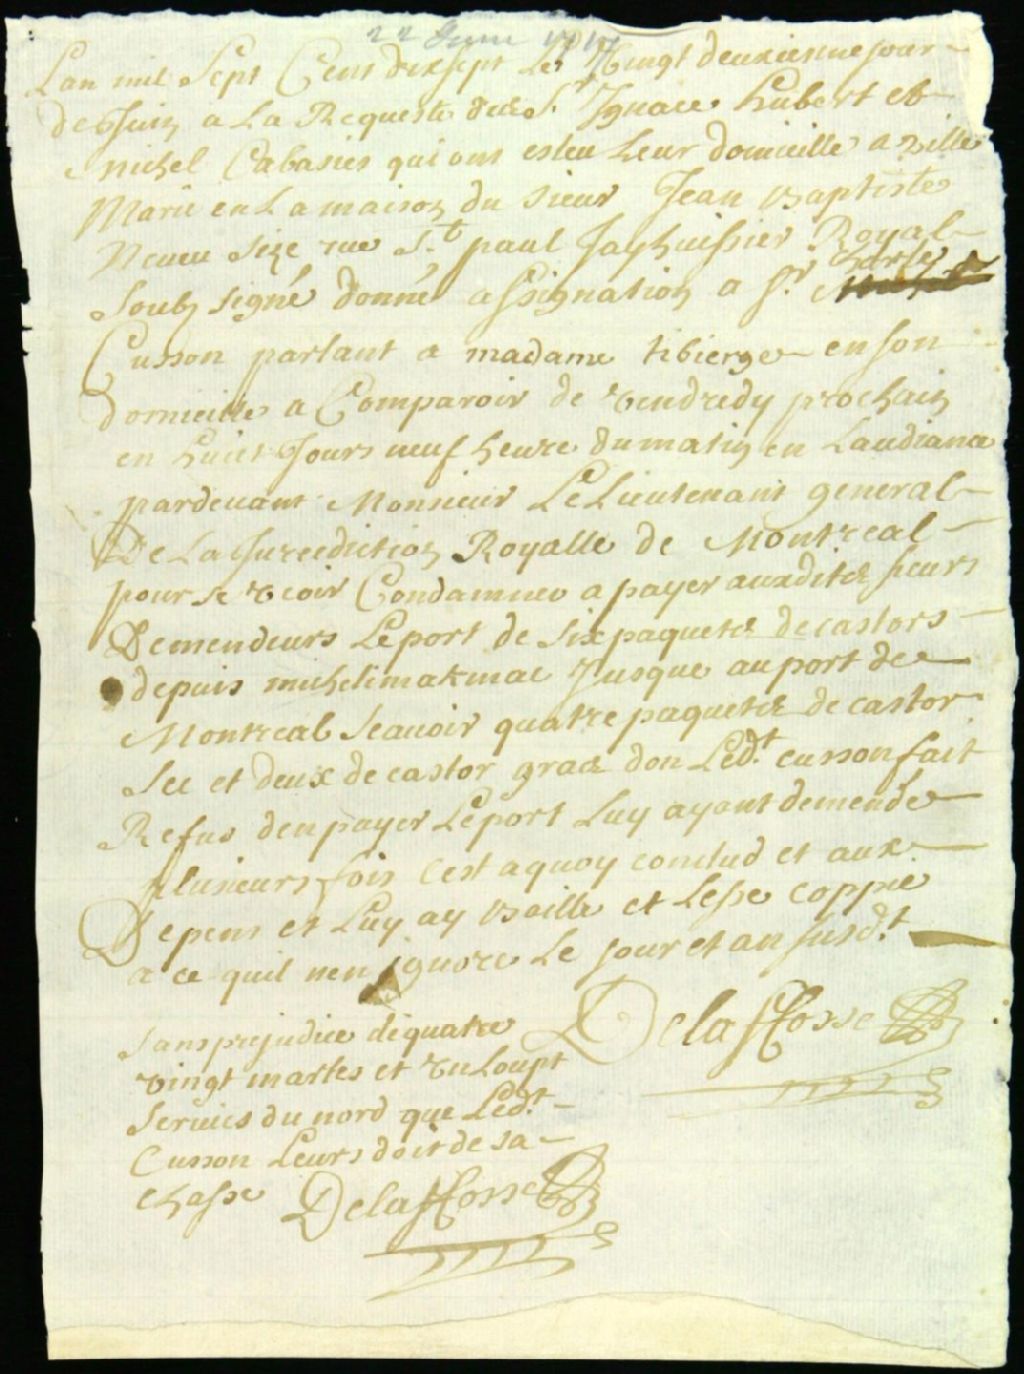 22 Juin 1717
Lan mil Sept Cent dixsept Le Vingt deuxiesme jour
de Juin a La Requeste des Srs Ignace hubert et
michel Cabasies qui ont esleu Leur domicille a ville
Marie en La maison du Sieur Jean Baptiste
Neveu Size rue St paul Jay huissier Royal
Soubz Signé donné assignation a Sr charle
Cusson parlant a madame tibierge en son
domicille a Comparoir de vendredy prochain
en huict Jours neuf heure du matin en Laudiance
pardevant Monsieur Le Lieutenant general
De La Jureediction Royalle de Montreal
pour se veoir Condamner a payer auxdits sieurs
Demendeurs Le port de Six paquets de castors
depuis michelimakinac Jusque au port de
Montreal Scavoir quatre paquets de castor
Sec et deux de castor gras don Ledt cusson fait
Refus den payer Le port Luy ayant demendé
plusieurs fois Cest a quoy conclud et aux
Depens et Luy ay Baillé et Lesse coppie
a ce quil nen ignore Le jour et an susdt
DelafFosse
Sans prejudice de quatre
vingt martes et un Loupt
Servies du nord que Ledt
Cusson Leurs doit de sa
chasse DelafFosse